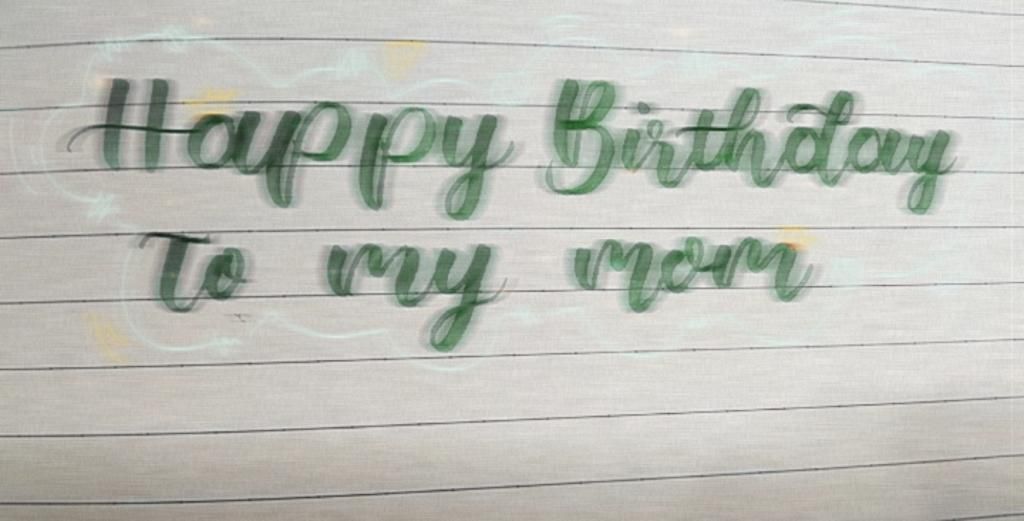 Happy Birthday
To my mom